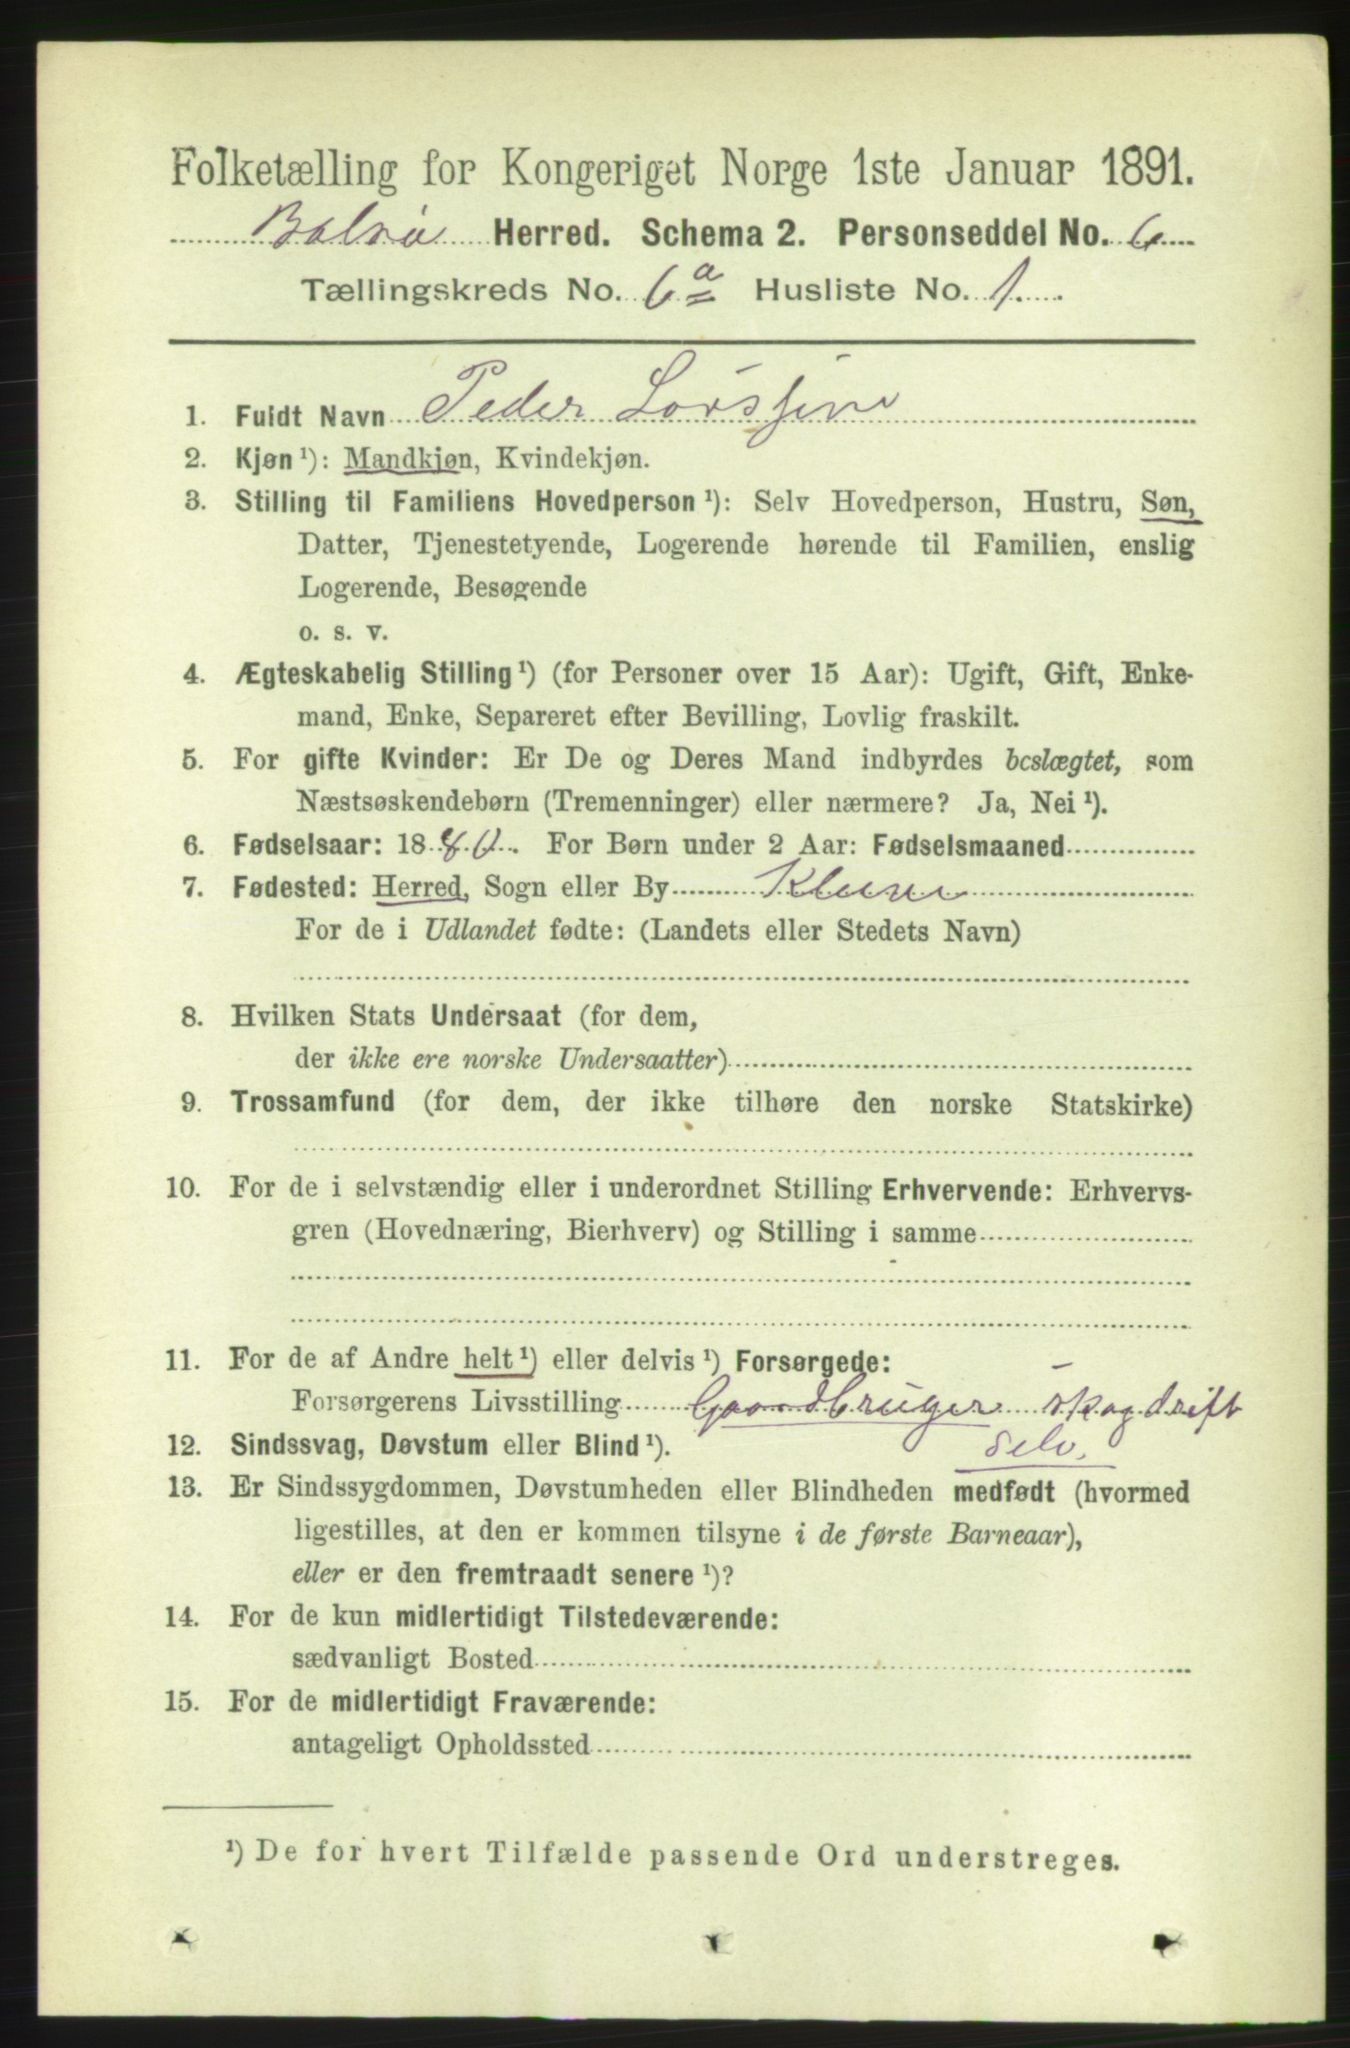 Folketælling for Kongeriget Norge 1ste Januar 1891.
Bolsø Herred. Schema 2. Personseddel No. 6
Tællingskreds No. 6a Husliste No. 1.
1. Fuldt Navn Peder
2. Kjøn ¹): Mandkjøn, Kvindekjøn.
3. Stilling til Familiens Hovedperson ¹): Selv Hovedperson, Hustru, Søn,
Datter, Tjenestetyende, Logerende hørende til Familien, enslig
Logerende, Besøgende
o. s. v.
4. Ægteskabelig Stilling ¹) (for Personer over 15 Aar): Ugift, Gift, Enke-
mand, Enke, Separeret efter Bevilling, Lovlig fraskilt.
5. For gifte Kvinder: Er De og Deres Mand indbyrdes beslægtet, som
Næstsøskendebørn (Tremenninger) eller nærmere? Ja, Nei ¹).
6. Fødselsaar: 1880. For Børn under 2 Aar: Fødselsmaaned
7. Fødested: Herred, Sogn eller By Kleive
For de i Udlandet fødte: (Landets eller Stedets Navn)
8. Hvilken Stats Undersaat (for dem,
der ikke ere norske Undersaatter)
9. Trossamfund (for dem, der ikke tilhøre den norske Statskirke)
10. For de i selvstændig eller i underordnet Stilling Erhvervende: Erhvervs-
gren (Hovednæring, Bierhverv) og Stilling i samme
11. For de af Andre helt ¹) eller delvis ¹) Forsørgede:
Forsørgerens Livsstilling Gaardbruger skogdrift
selv.
12. Sindssvag, Døvstum eller Blind ¹).
13. Er Sindssygdommen, Døvstumheden eller Blindheden medfødt (hvormed
ligestilles, at den er kommen tilsyne i de første Barneaar),
eller er den fremtraadt senere ¹)?
14. For de kun midlertidigt Tilstedeværende:
sædvanligt Bosted
15. For de midlertidigt Fraværende:
antageligt Opholdssted
¹) De for hvert Tilfælde passende Ord understreges.